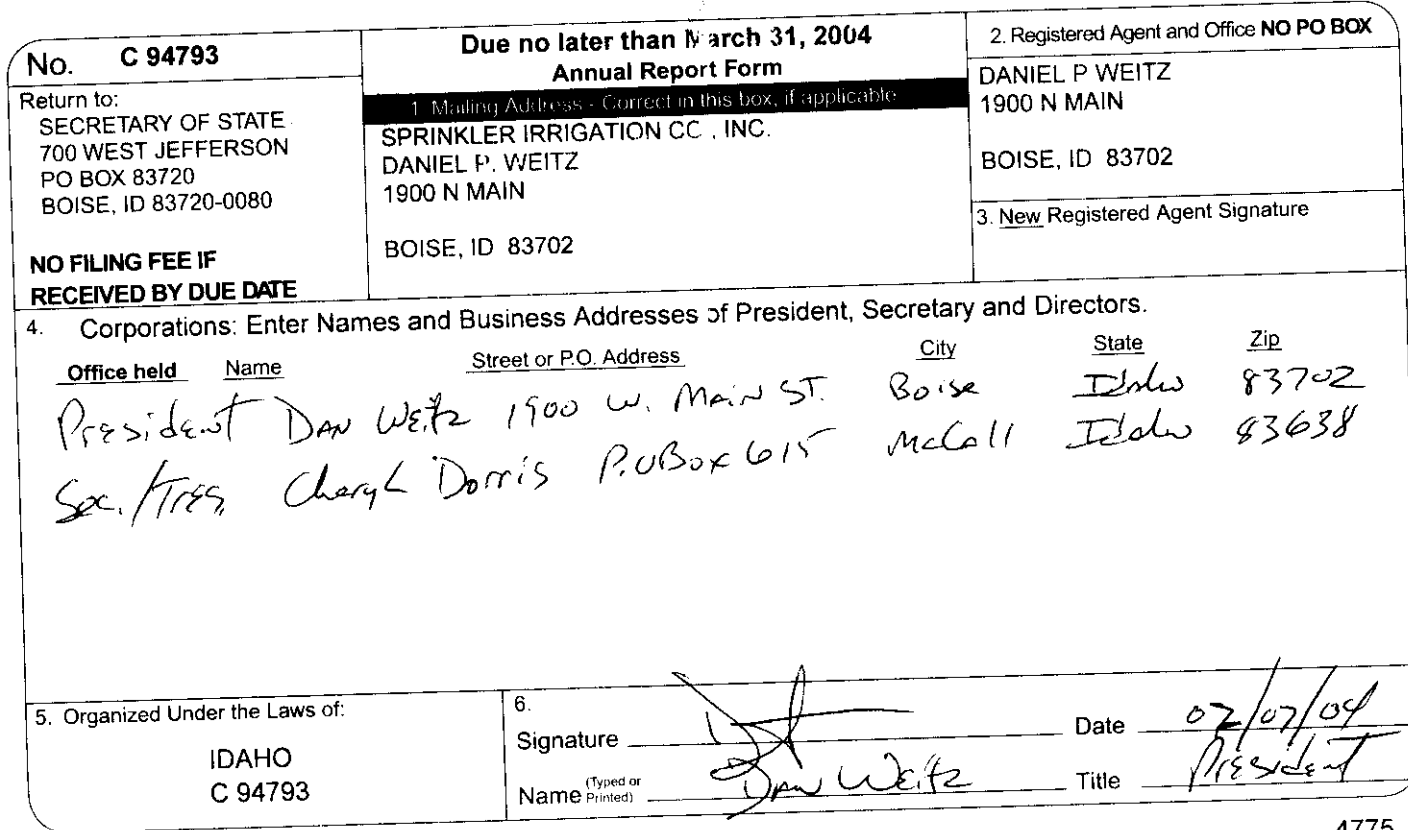 No. C 94793
Return to:
SECRETARY OF STATE
700 WEST JEFFERSON
PO BOX 83720
BOISE, ID 83720-0080
NO FILING FEE IF
RECEIVED BY DUE DATE
Due no later than March 31, 2004
Annual Report Form
1. Mailing Address - Correct in this box, if applicable
SPRINKLER IRRIGATION CC , INC.
DANIEL P. WEITZ
1900 N MAIN
BOISE, ID 83702
2. Registered Agent and Office NO PO BOX
DANIEL P WEITZ
1900 N MAIN
BOISE, ID 83702
3. New Registered Agent Signature
4. Corporations: Enter Names and Business Addresses of President, Secretary and Directors.
Office held Name Street or P.O. Address City State Zip
President Dan Weitz 1900 W. Main St. Boise Idaho 83702
Sec./Tres. Cheryl Dorris P.O Box 615 McCall Idaho 83638
5. Organized Under the Laws of:
IDAHO
C 94793
6.
Signature Date 02/07/04
Name (Typed or Printed) Dan Weitz Title President
4775